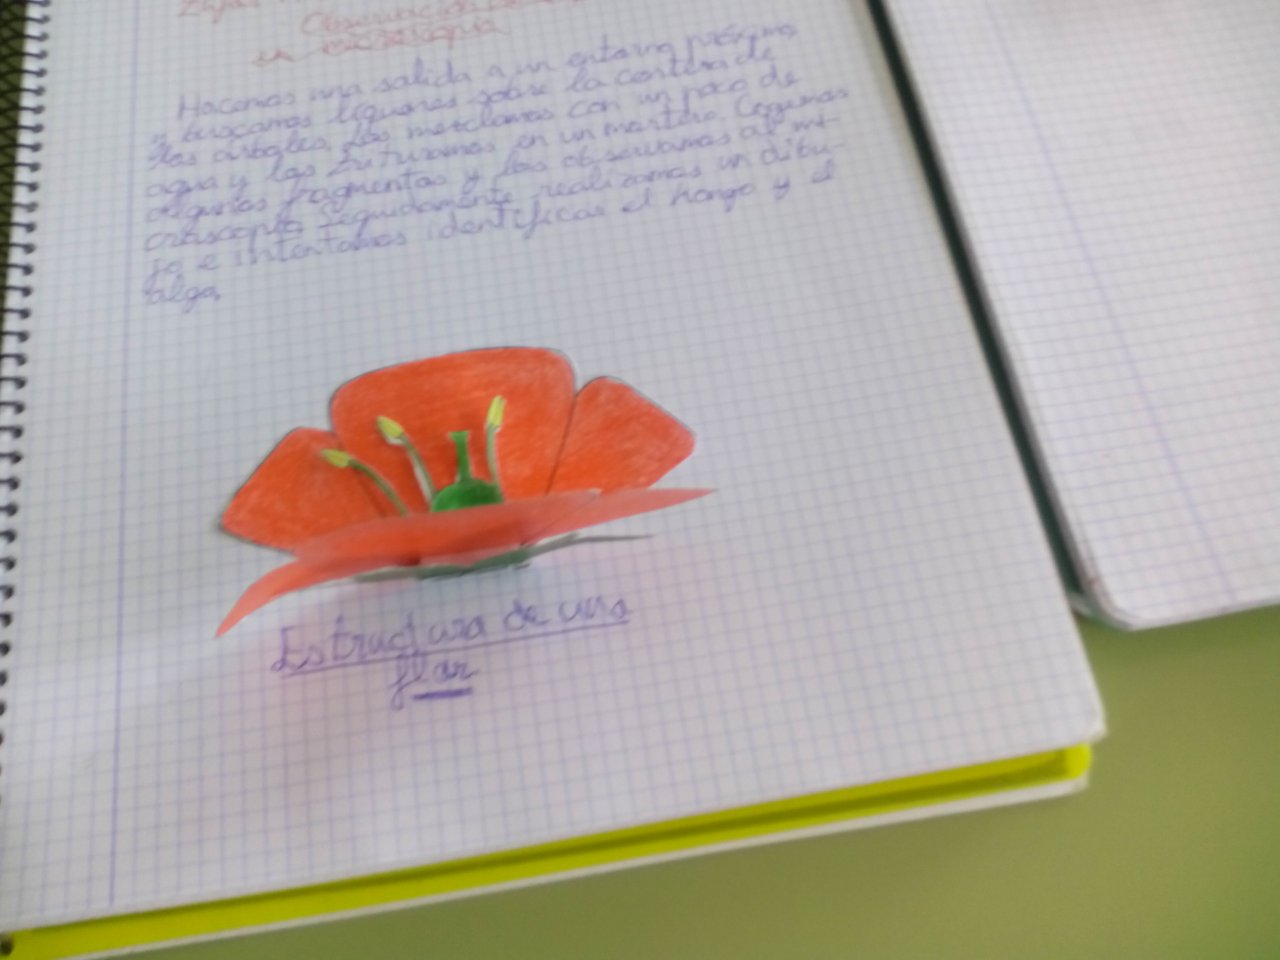 Observación
en microscopio
Hacemos una salida a un entorno próximo
y buscamos líquenes sobre la corteza de
los árboles. Los mezclamos con un poco de
agua y los trituramos en un mortero. Cogemos
algunos fragmentos y los observamos al mi-
croscopio. Seguidamente realizamos un dibu-
jo e intentamos identificar el hongo y el
alga.
Estructura de una
flor